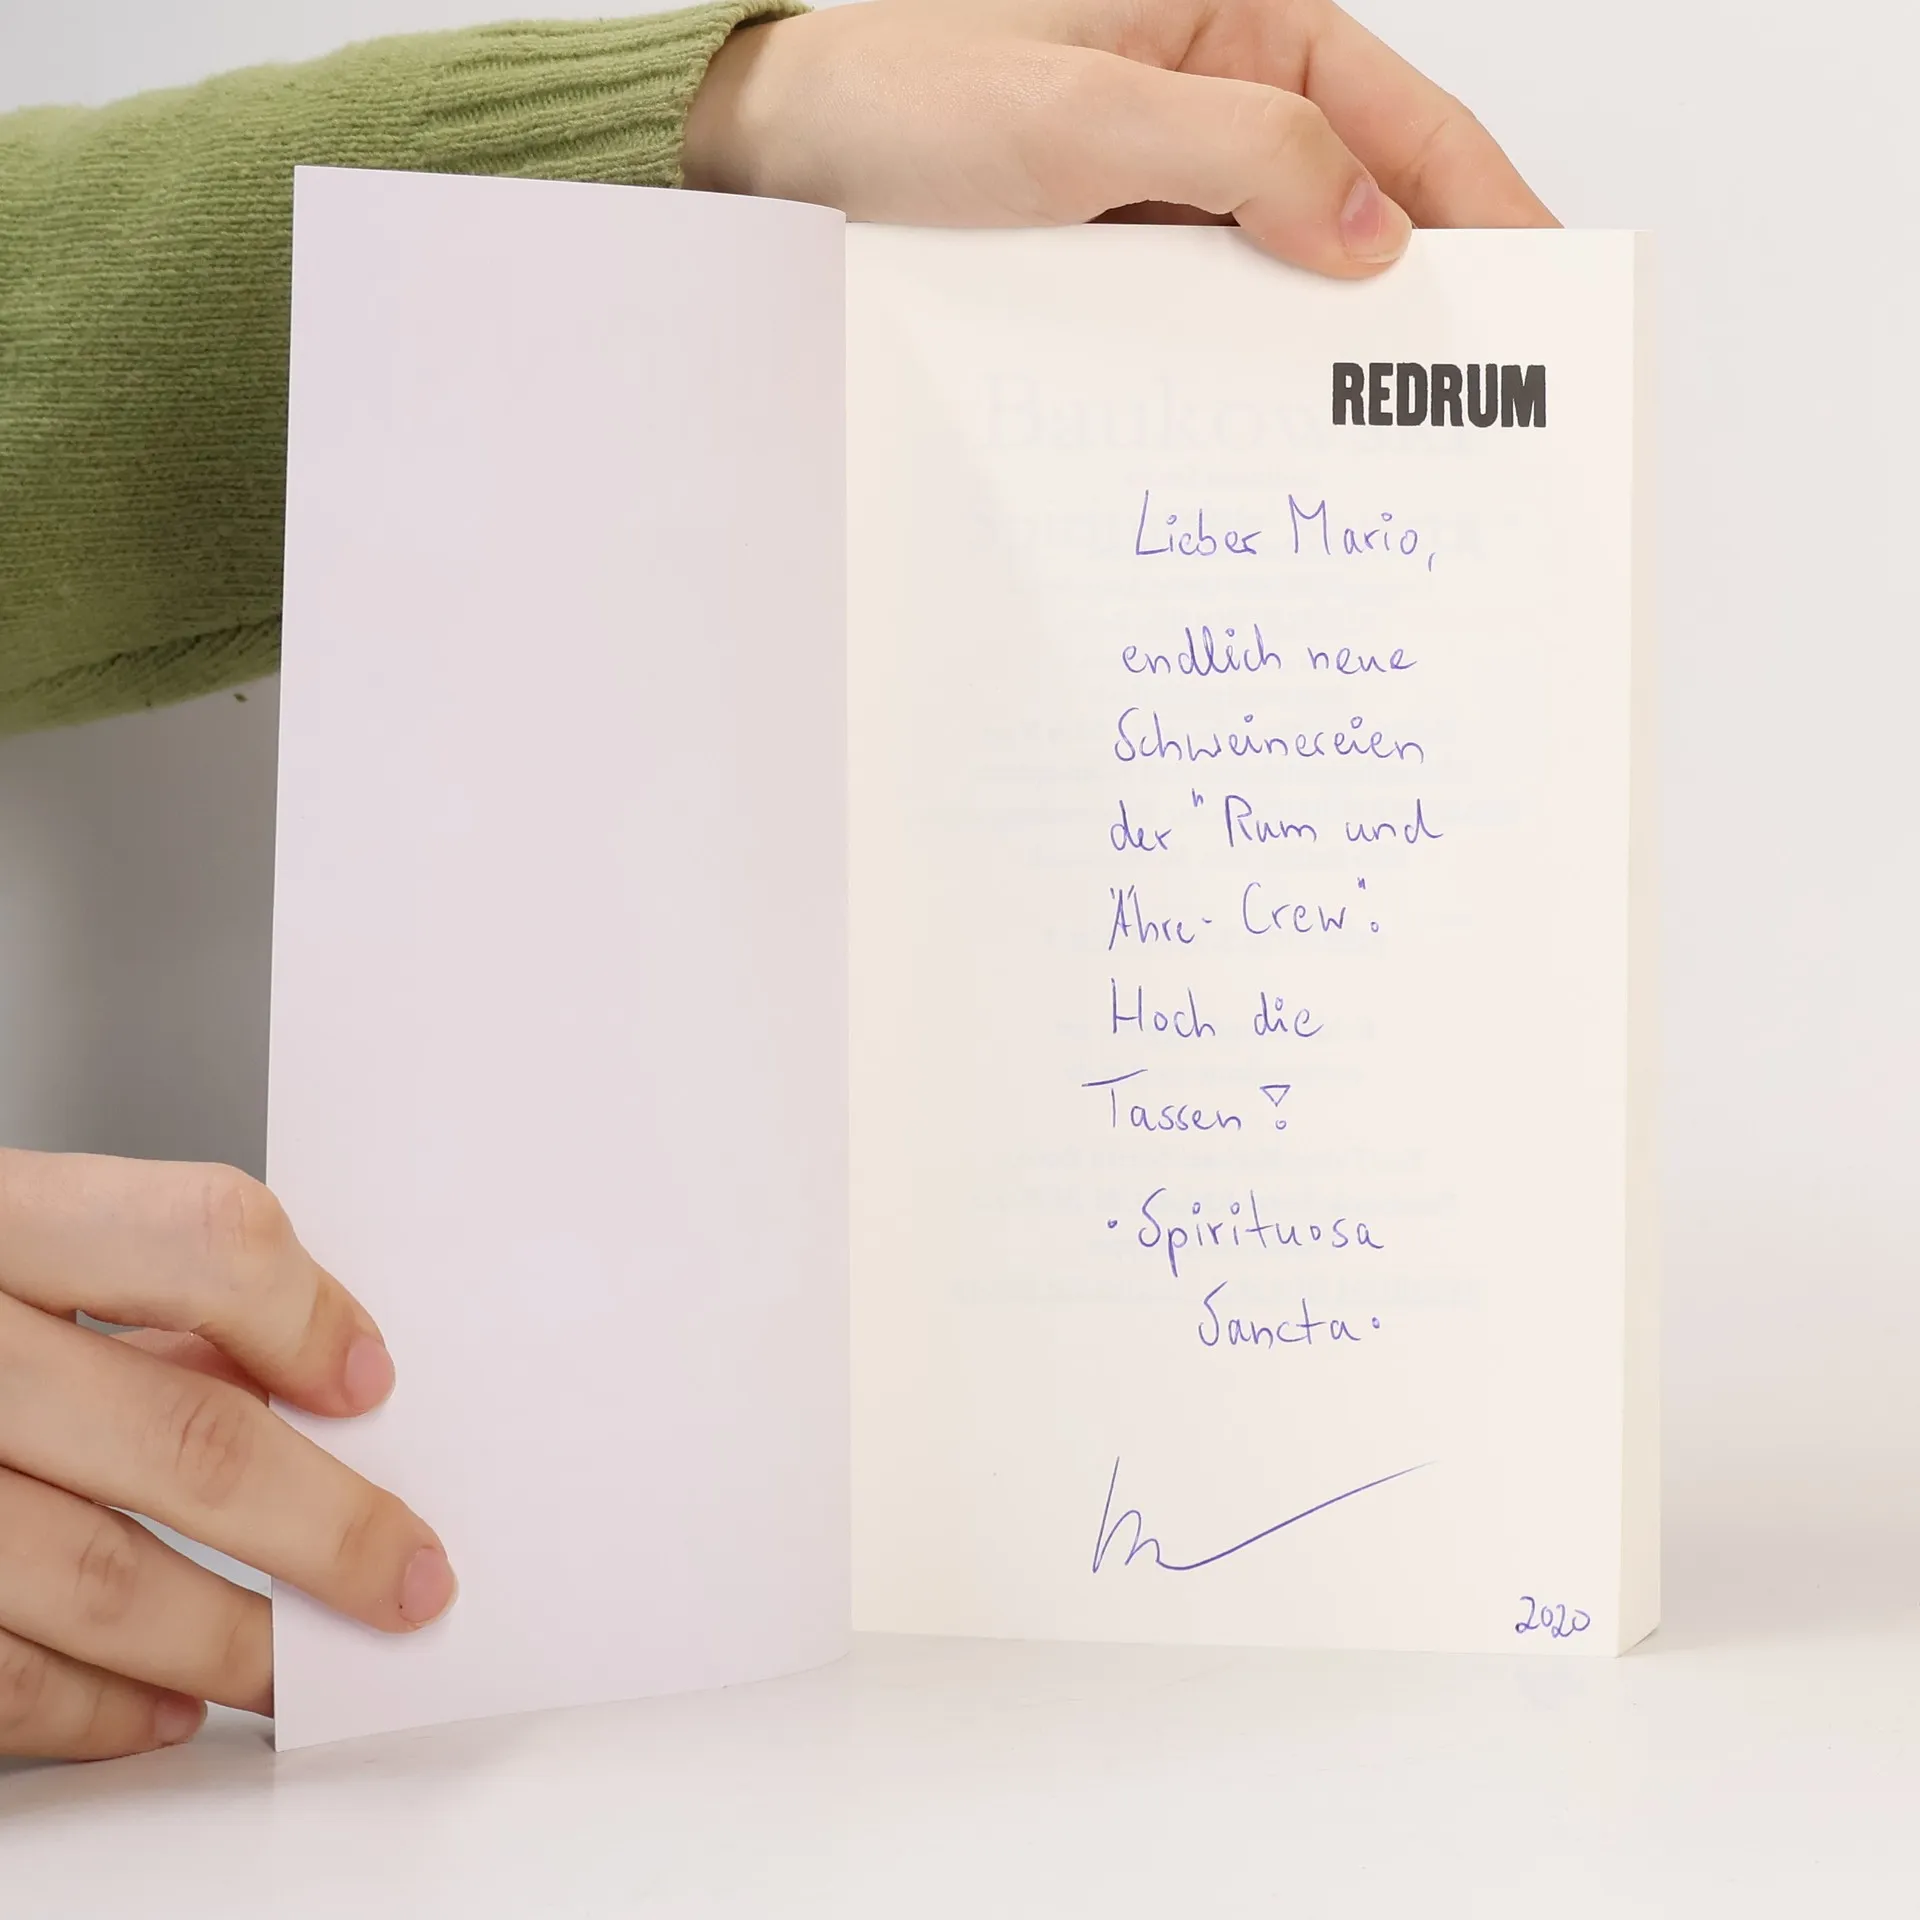 REDRUM
Lieber Mario,
endlich neue
Schweinereien
der "Rum und
Ähre-Crew".
Hoch die
Tassen!
· Spirituosa
Sancta ·
2020